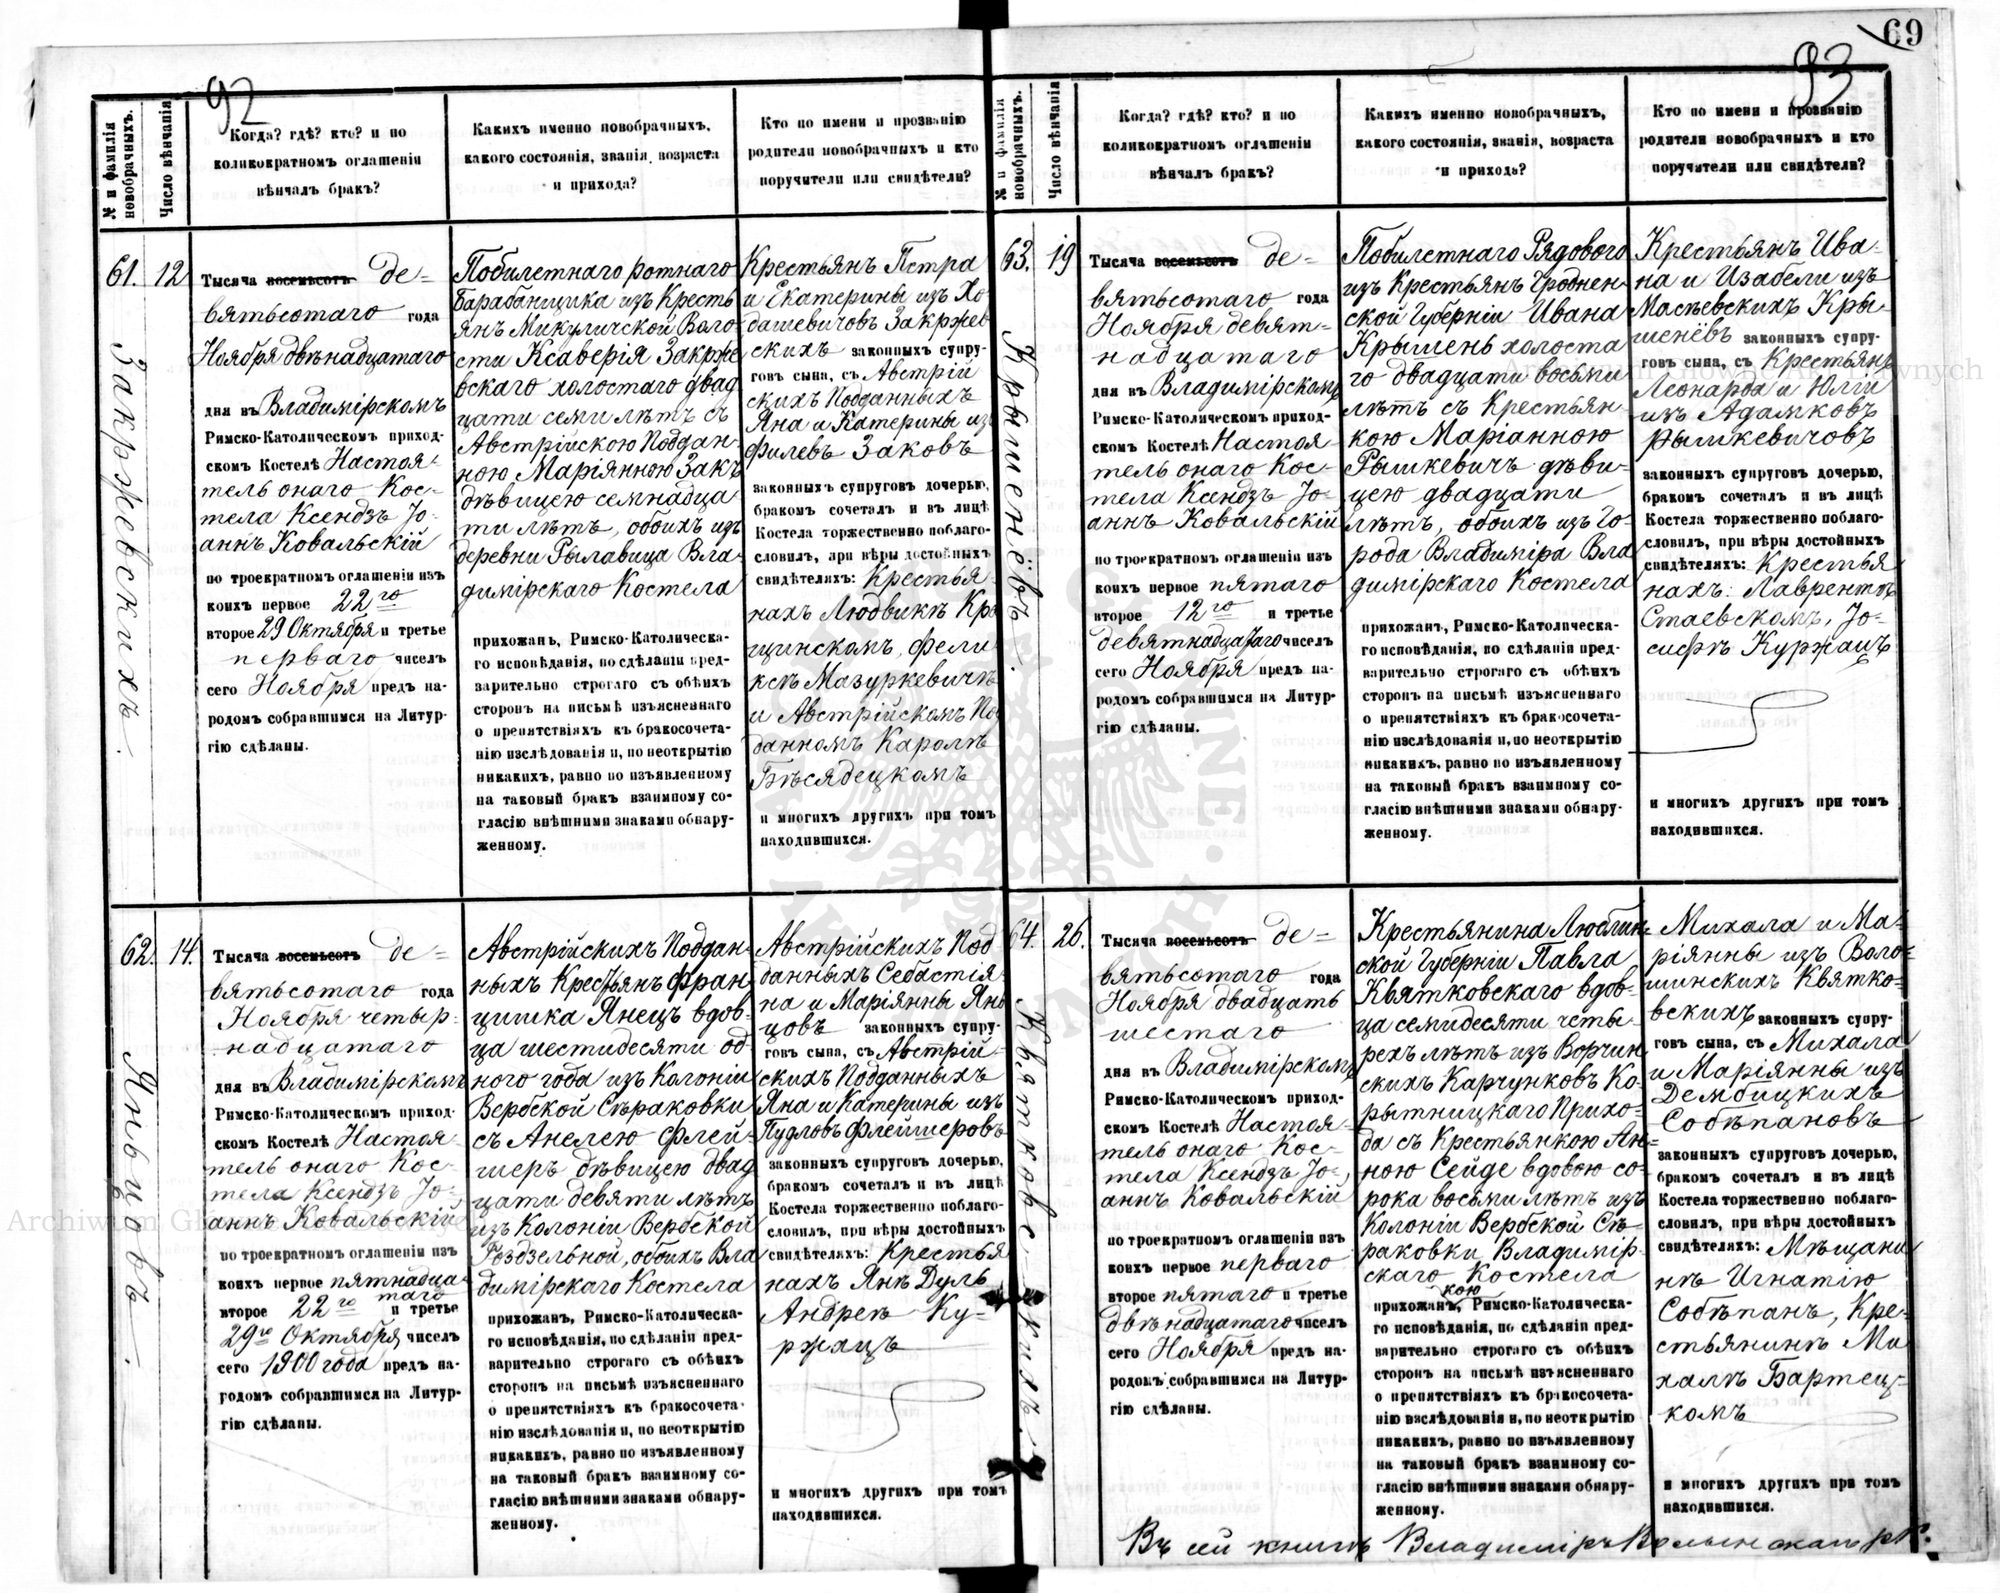 69
92
№ и фамилія новобрачныхъ.
Число вѣнчанія
Когда? гдѣ? кто? и по
коликократномъ оглашеніи
вѣнчалъ бракъ?
Какихъ именно новобрачныхъ,
какого состоянія, званія, возраста
и прихода?
Кто по имени и прозванію
родители новобрачныхъ и кто
поручители или свидѣтели?
61.
Закржевскихъ.
12
Тысяча восемьсотъ де=
вятьсотаго года
Ноября двѣнадцатаго
дня въ Владимірскомъ
Римско-Католическомъ приход-
скомъ Костелѣ Настоя-
тель онаго Кос-
тела Ксендзъ Іо-
аннъ Ковальскій
по троекратномъ оглашеніи изъ
коихъ первое 22го
второе 29 Октября и третье
перваго чиселъ
сего Ноября предъ на-
родомъ собравшимся на Литур-
гію сдѣланы.
Побилетнаго ротнаго
Барабанщика изъ Кресть
янъ Микуличской Воло-
сти Ксаверія Закрже
вскаго холостаго двад
цати семи лѣтъ съ
Австрійскою Поддан-
ною Маріянною Закъ
дѣвицею семнадца-
ти лѣтъ, обоихъ изъ
деревни Рылавица Вла-
димірскаго Костела
прихожанъ, Римско-Католическа-
го исповѣданія, по сдѣланіи пред-
варительно строгаго съ обѣихъ
сторонъ на письмѣ изъясненнаго
о препятствіяхъ къ бракосочета-
нію изслѣдованія и, по неоткрытію
никакихъ, равно по изъявленному
на таковый бракъ взаимному со-
гласію внѣшними знаками обнару-
женному.
Крестьянъ Петра
и Екатерины изъ Хо-
дашевичовъ Закржев
скихъ законныхъ супру-
говъ сына, съ Австрій
скихъ Подданныхъ
Яна и Катерины изъ
Филевъ Заковъ
законныхъ супруговъ дочерью,
бракомъ сочеталъ и въ лицѣ
Костела торжественно поблаго-
словилъ, при вѣры достойныхъ
свидѣтеляхъ: Крестья-
нахъ Людвикѣ Кро
щинскомъ, Фели-
ксѣ Мазуркевичѣ
и Австрійскомъ Под
данномъ Каролѣ
Бѣсядецкомъ
и многихъ другихъ при томъ
находившихся.
62.
Яньцовъ.
14.
Тысяча восемьсотъ де=
вятьсотаго года
Ноября четыр-
надцатаго
дня въ Владимірскомъ
Римско-Католическомъ приход-
скомъ Костелѣ Настоя-
тель онаго Кос-
тела Ксендзъ Іо-
аннъ Ковальскій
по троекратномъ оглашеніи изъ
коихъ первое пятнадца-
таго
второе 22го и третье
29го Октября чиселъ
сего 1900 года предъ на-
родомъ собравшимся на Литур-
гію сдѣланы.
Австрійскихъ Поддан-
ныхъ Крестьянъ Фран
цишка Янецъ вдов-
ца шестидесяти од-
ного года изъ Колоніи
Вербской Сѣраковки
съ Анелею Флей-
шеръ дѣвицею двад
цати девяти лѣтъ
изъ Колоніи Вербской
Роздзельной, обоихъ Вла
димірскаго Костела
прихожанъ, Римско-Католическа-
го исповѣданія, по сдѣланіи пред-
варительно строгаго съ обѣихъ
сторонъ на письмѣ изъясненнаго
о препятствіяхъ къ бракосочета-
нію изслѣдованія и, по неоткрытію
никакихъ, равно по изъявленному
на таковый бракъ взаимному со-
гласію внѣшними знаками обнару-
женному.
Австрійскихъ Под
данныхъ Себастія
на и Маріянны Янь
цовъ законныхъ супру-
говъ сына, съ Австрій-
скихъ Подданныхъ
Яна и Катерины изъ
Пудловъ Флейшеровъ
законныхъ супруговъ дочерью,
бракомъ сочеталъ и въ лицѣ
Костела торжественно поблаго-
словилъ, при вѣры достойныхъ
свидѣтеляхъ: Крестья
нахъ Янѣ Дуль
Андреѣ Ку-
ржацъ
и многихъ другихъ при томъ
находившихся.
93
№ и фамилія новобрачныхъ.
Число вѣнчанія
Когда? гдѣ? кто? и по
коликократномъ оглашеніи
вѣнчалъ бракъ?
Какихъ именно новобрачныхъ,
какого состоянія, званія, возраста
и прихода?
Кто по имени и прозванію
родители новобрачныхъ и кто
поручители или свидѣтели?
63.
Крышенёвъ.
19
Тысяча восемьсотъ де=
вятьсотаго года
Ноября девят-
надцатаго
дня въ Владимірскомъ
Римско-Католическомъ приход-
скомъ Костелѣ Настоя-
тель онаго Кос-
тела Ксендзъ Іо-
аннъ Ковальскій
по троекратномъ оглашеніи изъ
коихъ первое пятаго
второе 12го и третье
девятнадцатаго чиселъ
сего Ноября предъ на-
родомъ собравшимся на Литур-
гію сдѣланы.
Побилетнаго Рядового
изъ Крестьянъ Гроднен-
ской Губерніи Ивана
Крышень холоста
го двадцати восьми
лѣтъ съ Крестьян-
кою Маріанною
Рышкевичъ дѣви-
цею двадцати
лѣтъ, обоихъ изъ Го-
рода Владиміра Вла
димірскаго Костела
прихожанъ, Римско-Католическа-
го исповѣданія, по сдѣланіи пред-
варительно строгаго съ обѣихъ
сторонъ на письмѣ изъясненнаго
о препятствіяхъ къ бракосочета-
нію изслѣдованія и, по неоткрытію
никакихъ, равно по изъявленному
на таковый бракъ взаимному со-
гласію внѣшними знаками обнару-
женному.
Крестьянъ Ива-
на и Изабели изъ
Масѣевскихъ Кры-
шенёвъ законныхъ супру-
говъ сына, съ Крестьянъ
Леонарда и Юлій
изъ Адамковъ
Рышкевичовъ
законныхъ супруговъ дочерью,
бракомъ сочеталъ и въ лицѣ
Костела торжественно поблаго-
словилъ, при вѣры достойныхъ
свидѣтеляхъ: Крестья
нахъ: Лаврентѣ
Стаевскомъ, Іо-
сифѣ Куржацъ
и многихъ другихъ при томъ
находившихся.
64.
Квятковс-кихъ.
26.
Тысяча восемьсотъ де=
вятьсотаго года
Ноября двадцать
шестаго
дня въ Владимірскомъ
Римско-Католическомъ приход-
скомъ Костелѣ Настоя-
тель онаго Кос-
тела Ксендзъ Іо-
аннъ Ковальскій
по троекратномъ оглашеніи изъ
коихъ первое перваго
второе пятаго и третье
двѣнадцатаго чиселъ
сего Ноября предъ на-
родомъ собравшимся на Литур-
гію сдѣланы.
Крестьянина Люблин-
ской Губерніи Павла
Квятковскаго вдов-
ца семидесяти четы-
рехъ лѣтъ изъ Ворчин
скихъ Карчунковъ Ко-
рытницкаго Прихо-
да съ Крестьянкою Ан=
ною Сейде вдовою со-
рока восьми лѣтъ изъ
Колоніи Вербской Сѣ-
раковки Владимір-
скаго Костела
кою
прихожанъ, Римско-Католическа-
го исповѣданія, по сдѣланіи пред-
варительно строгаго съ обѣихъ
сторонъ на письмѣ изъясненнаго
о препятствіяхъ къ бракосочета-
нію изслѣдованія и, по неоткрытію
никакихъ, равно по изъявленному
на таковый бракъ взаимному со-
гласію внѣшними знаками обнару-
женному.
Михала и Ма-
ріянны изъ Воло-
шинскихъ Квятко-
вскихъ законныхъ супру-
говъ сына, съ Михала
и Маріянны изъ
Дембицкихъ
Собѣпановъ
законныхъ супруговъ дочерью,
бракомъ сочеталъ и въ лицѣ
Костела торжественно поблаго-
словилъ, при вѣры достойныхъ
свидѣтеляхъ: Мѣщани
нѣ Игнатію
Собѣпанъ, Кре-
стьянинѣ Ми
халѣ Бартец-
комъ
и многихъ другихъ при томъ
находившихся.
Въ сей книгѣ Владиміръ Волынскаго
Archiwum Główne Akt Dawnych